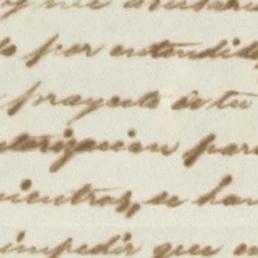 y me
do por entendido
proyecto de tu
autorizacion para
mientras, se han
impedir que en